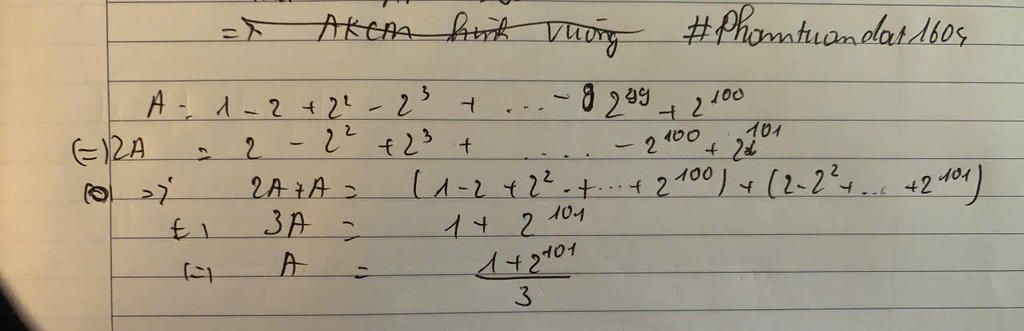 => AKCM hình vuông #Phamtuandat1605
A = 1 - 2 + 2² - 2³ + ... - 2⁹⁹ + 2¹⁰⁰
(=) 2A = 2 - 2² + 2³ + .... - 2¹⁰⁰ + 2¹⁰¹
=> 2A + A = (1 - 2 + 2² - + ... + 2¹⁰⁰) + (2 - 2² + ... + 2¹⁰¹)
(=) 3A = 1 + 2¹⁰¹
(=) A = (1 + 2¹⁰¹)/3